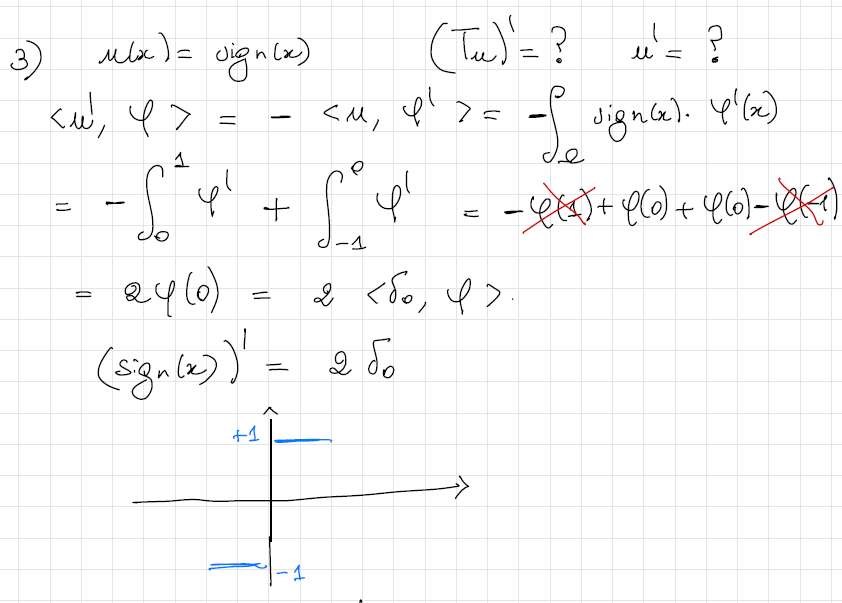 3) u(x) = sign(x) (Tu)' = ? u' = ?
<u', φ> = - <u, φ'> = -∫_Ω^ρ sign(x). φ'(x)
= -∫_0^1 φ' + ∫_{-1}^0 φ' = -φ(1) + φ(0) + φ(0) - φ(-1)
= 2φ(0) = 2 <δ₀, φ>.
(sign(x))' = 2 δ₀
+1
-1